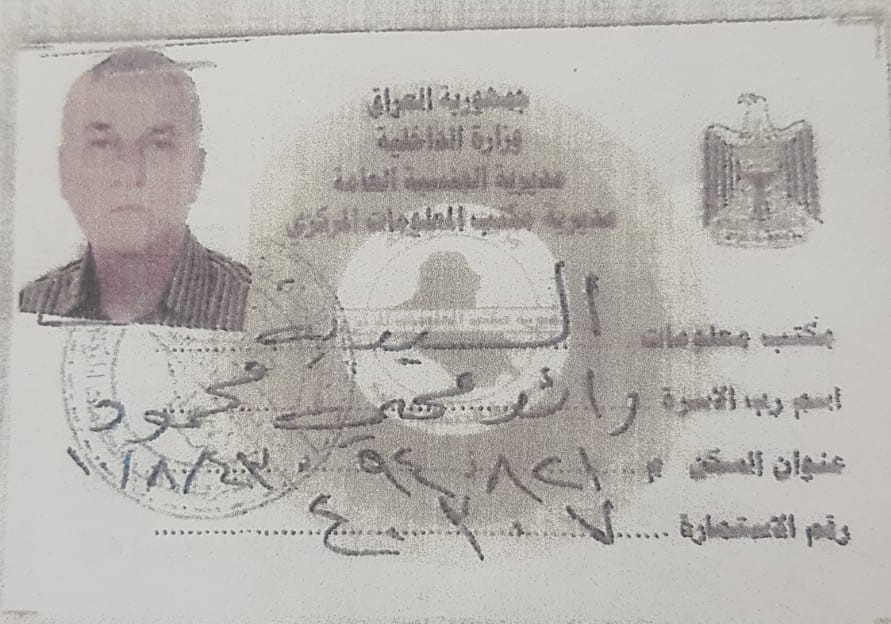 جمهورية العراق
وزارة الداخلية
مديرية الجنسية العامة
مديرية مكتب المعلومات المركزي
مكتب معلومات السيدية
اسم رب الأسرة رائد محمود
عنوان السكن م ٨٢١
رقم الاستمارة ٧٠٢٠٤